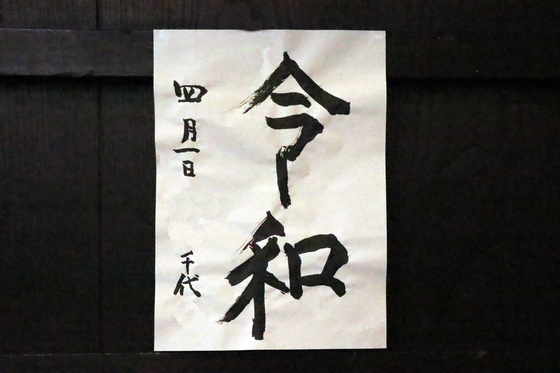 令和
四月一日
千代